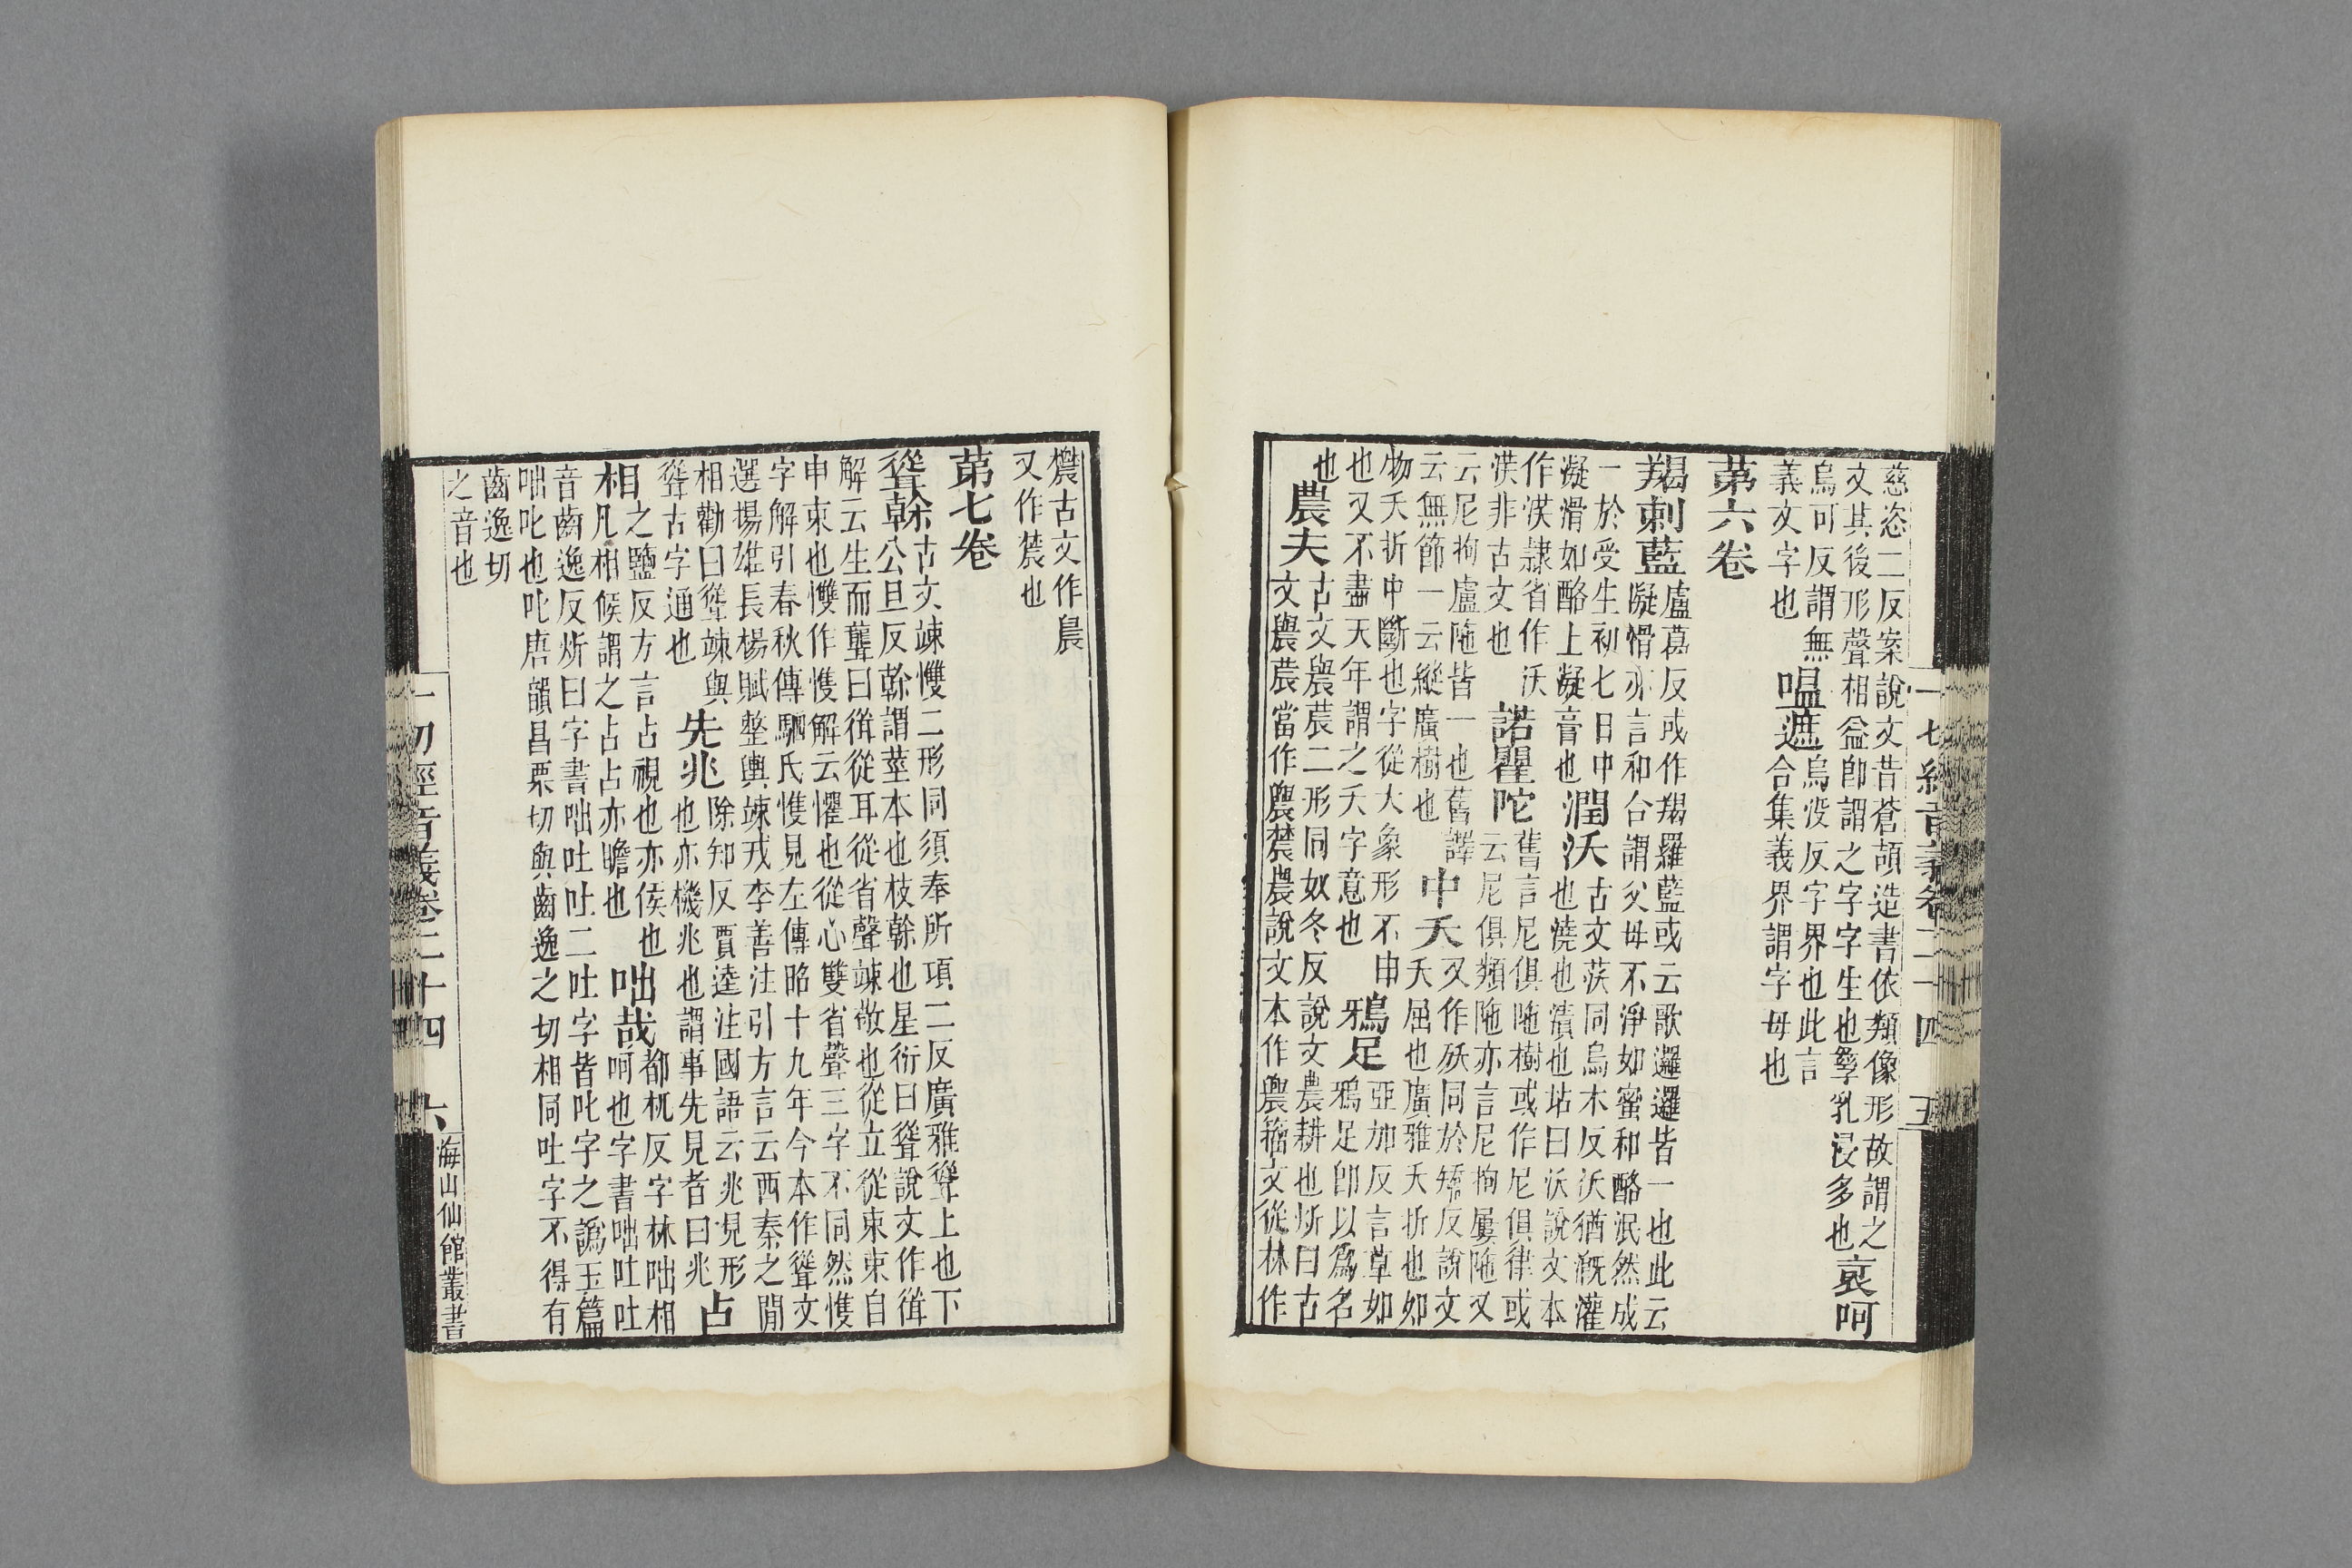 一切經音義卷二十四 五
慈恣二反案說文昔蒼頡造書依類像形故謂之
文其後形聲相益卽謂之字字生也孳乳浸多也裒呵
烏可反謂無
義文字也嗢遮烏没反字界也此言
合集義界謂字母也
第六卷
羯剌藍盧葛反或作羯羅藍或云歌邏邏皆一也此云
凝滑亦言和合謂父母不淨如蜜和酪泯然成
一於受生初七日中
凝滑如酪上凝膏也潤沃古文渶同烏木反沃猶溉灌
也澆也漬也坫曰沃說文本
作渶隸省作沃
渶非古文也諾瞿陀舊言尼俱陁樹或作尼俱律或
云尼俱類陁亦言尼拘屢陁又
云尼拘盧陁皆一也舊譯
云無節一云縱廣樹也中夭又作殀同於矯反說文
夭屈也廣雅夭折也如
物夭折中斷也字從大象形不申
也又不盡天年謂之夭字意也鵶足亞加反言草如
鵶足卽以爲名
也農夫古文䢉莀二形同奴冬反說文農耕也炘曰古
文䢉莀當作農說文本作䢉籀文從林作
農古文作
又作莀也
第七卷
聳榦古文竦㩳二形同須奉所項二反廣雅聳上也下
公旦反榦謂莖本也枝榦也星衍曰聳說文作
解云生而聾曰從耳從省聲竦敬也從立從束束自
申束也㩳作愯解云懼也從心雙省聲三字不同然愯
字解引春秋傳駟氏愯見左傳昭十九年今本作聳文
選揚雄長楊賦整輿竦戎李善注引方言云西秦之閒
相勸曰聳竦與
聳古字通也先兆除知反賈逵注國語云兆見形
也亦機兆也謂事先見者曰兆占
相之鹽反方言占視也亦侯也
凡相候謂之占占亦瞻也咄哉都杌反字林咄相
呵也字書咄吐吐
音齒逸反炘曰字書咄吐吐二吐字皆叱字之譌玉篇
咄叱也叱唐韻昌栗切與齒逸之切相同吐字不得有
齒逸切
之音也
一切經音義卷二十四 六 海山仙館叢書